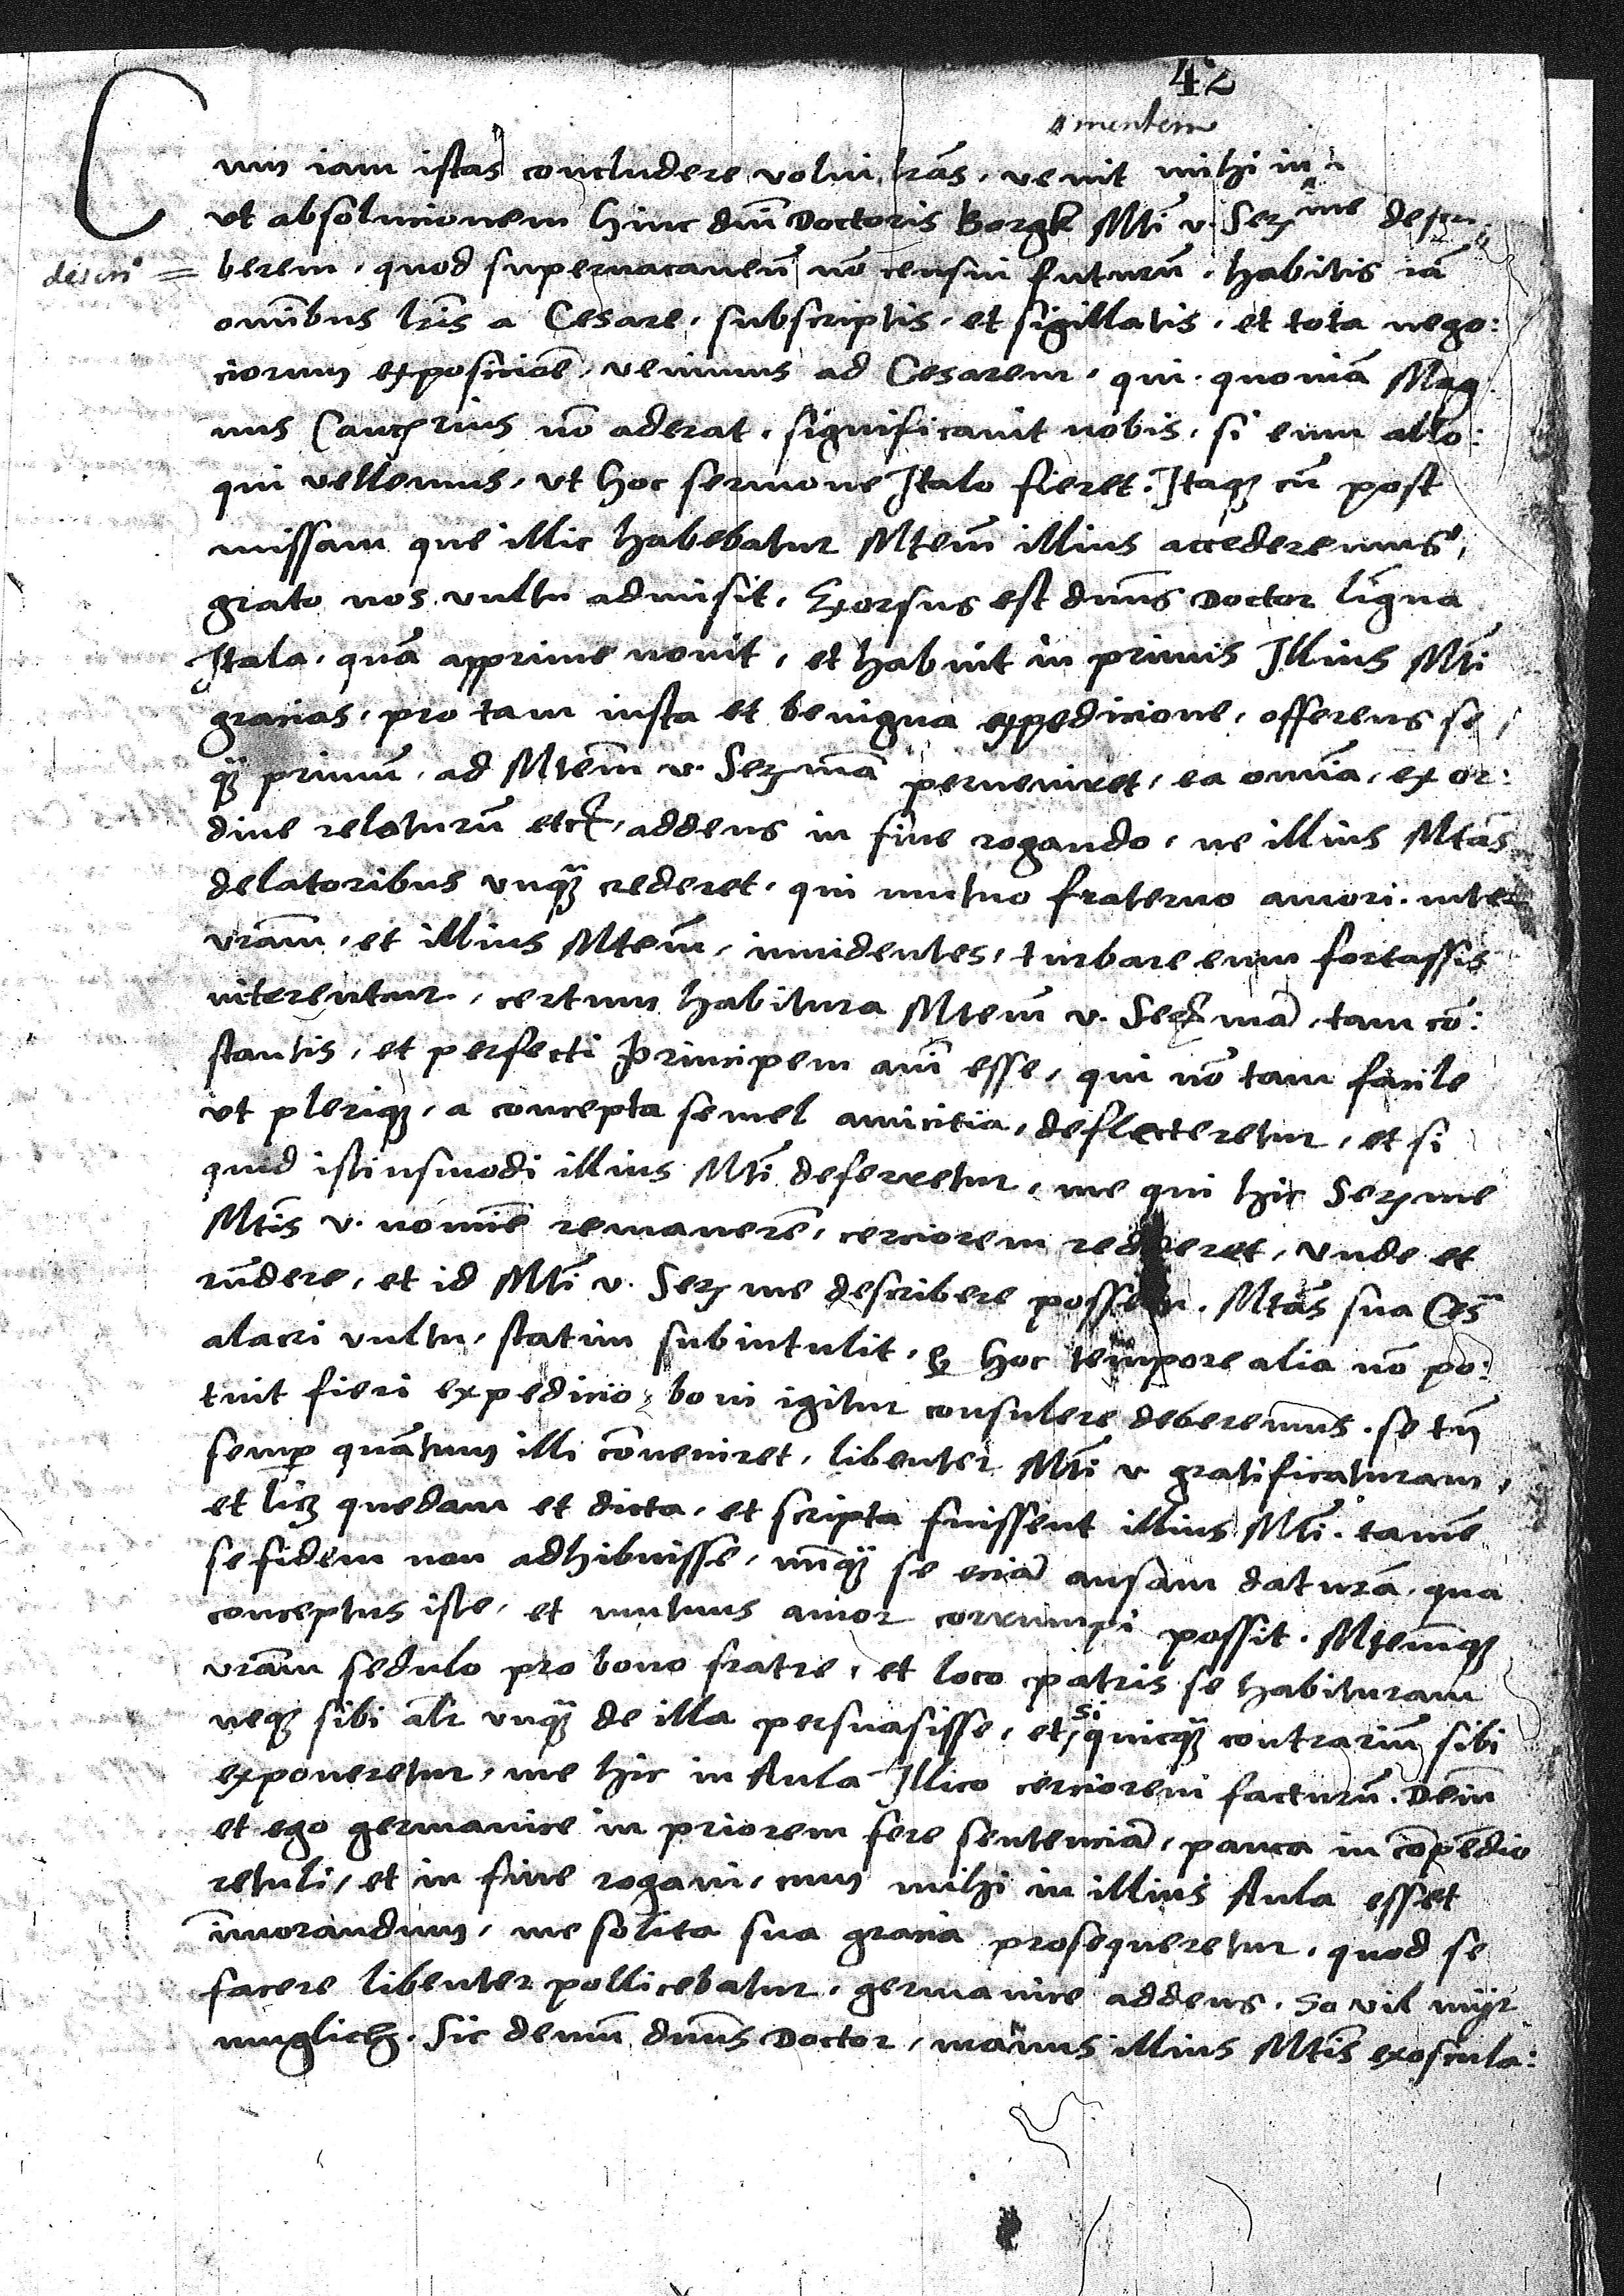 42
mentem
Cum iam istas concludere volui lras, venit mihi in
vt absolucionem hinc dni Doctoris Borgk Mti v. Serme descri
descri = berem, quod superuacaneu no censui futuru. habitis ia
omibus lris a Cesare, subscriptis, et sigillatis, et tota nego:
ciorum exposicioe, venimus ad Cesarem, qui quonia Mag
nus Canc rius no aderat, significauit nobis, si eum allo:
qui vellemus, vt hoc sermone Italo fieret. Itaq cu post
missam que illic habebatur Mtem illius accederemus,
grato nos vultu admisit. Exorsus est dnus Doctor ligua
Itala, qua apprime nouit, et habuit in primis Illius Mti
gracias, pro tam iusta et benigna expedicione, offerens se,
q primu, ad Mtem v. Serma perueniret, ea omia, ex or:
dine relaturu etc, addens in fine rogando, ne illius Mtas
delatoribus vnq crederet, qui mutuo fraterno amori inter
vram, et illius Mtem, inuidentes, turbare eum fortassis
niterentur, certum habitura Mtem v. Serma, tam co:
stantis, et perfecti Principem ani esse, qui no tam facile
vt pleriq, a concepta semel amicitia, deflecteretur, et si
quid istiusmodi illius Mti deferretur, me qui hic Serme
Mtis v. nomie remanere, cerciorem redderet, vnde et
rudere, et id Mti v. Serme describere possem. Mtas sua Ces
alacri vultu, statim subintulit, q hoc tempore alia no po:
tuit fieri expedicio, boni igitur consulere deberemus. se tn
semp quatum illi coueniret, libenter Mti v gratificaturam,
et licz quedam et dicta, et scripta fuissent illius Mti. tame
se fidem non adhibuisse, nunq se ecia ansam datura, qua
conceptus iste, et mutuus amor corrumpi possit. Mtemq
vram sedulo pro bono fratre, et loco patris se habituram
neq sibi alr vnq de illa persuasisse, et si quicq contrariu sibi
exponeretur, me hic in Aula Illico cerciorem facturu. Dein
et ego germanice in priorem fere sentencia, pauca in copedio
retuli, et in fine rogaui, cum mihi in illius Aula esset
imorandum, me solita sua gracia prosequeretur, quod se
facere libenter pollicebatur, germanice addens. So vil mijr
muglich. Sic demu dnus Doctor, manus illius Mtis exoscula: